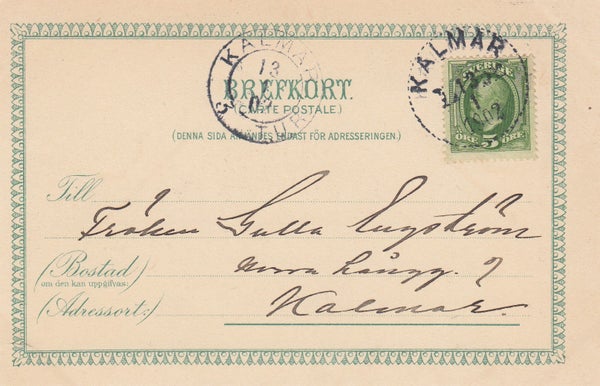 KALMAR
13
1
02
3 TUR
KALMAR
13
1
1902
SVERIGE
ÖRE 5 ÖRE
BREFKORT.
(CARTE POSTALE.)
(DENNA SIDA ANVÄNDES ENDAST FÖR ADRESSERINGEN.)
Till
Fröken Gulla Engström
(Bostad)
om den kan uppgifvas:
Norra Långg. 7
(Adressort:)
Kalmar.